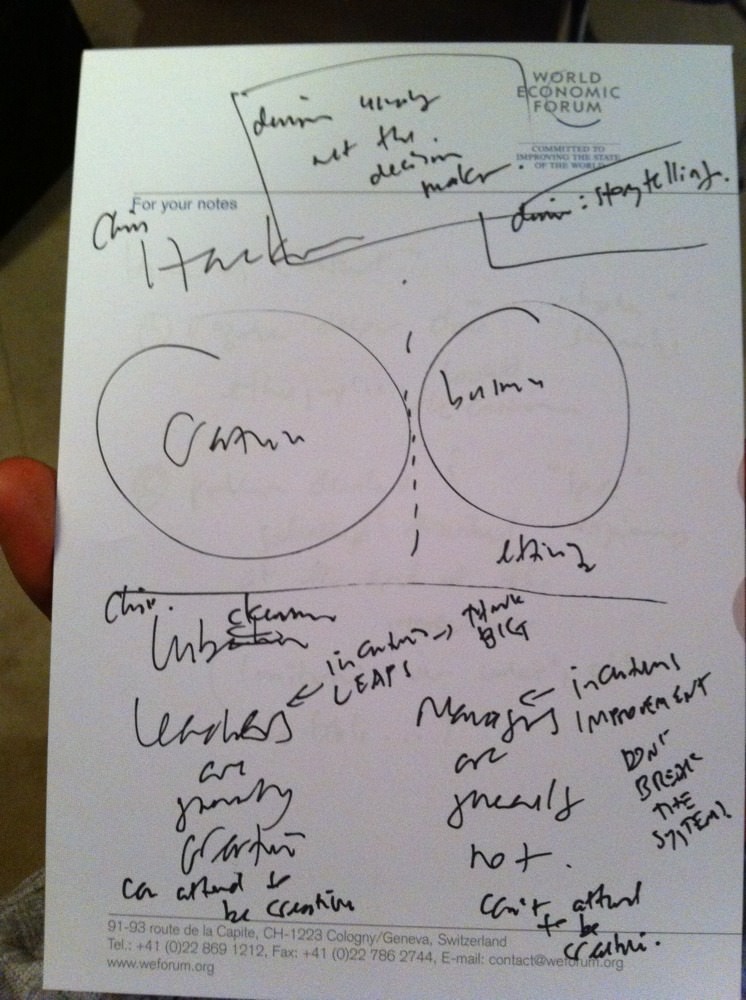 WORLD
ECONOMIC
FORUM
COMMITTED TO
IMPROVING THE STATE
OF THE WORLD
usually
not the
decision
maker.
For your notes
: storytelling.
Chris
Creative
business
Chris.
incentives → THINK
BIG
LEAPS
Leaders
are
generally
creative
can afford to
be creative
Managers
incentives
IMPROVEMENT
are
generally
not.
DON'T
BREAK
THE
SYSTEM!
can't afford
to be
creative.
91-93 route de la Capite, CH-1223 Cologny/Geneva, Switzerland
Tel.: +41 (0)22 869 1212, Fax: +41 (0)22 786 2744, E-mail: contact@weforum.org
www.weforum.org